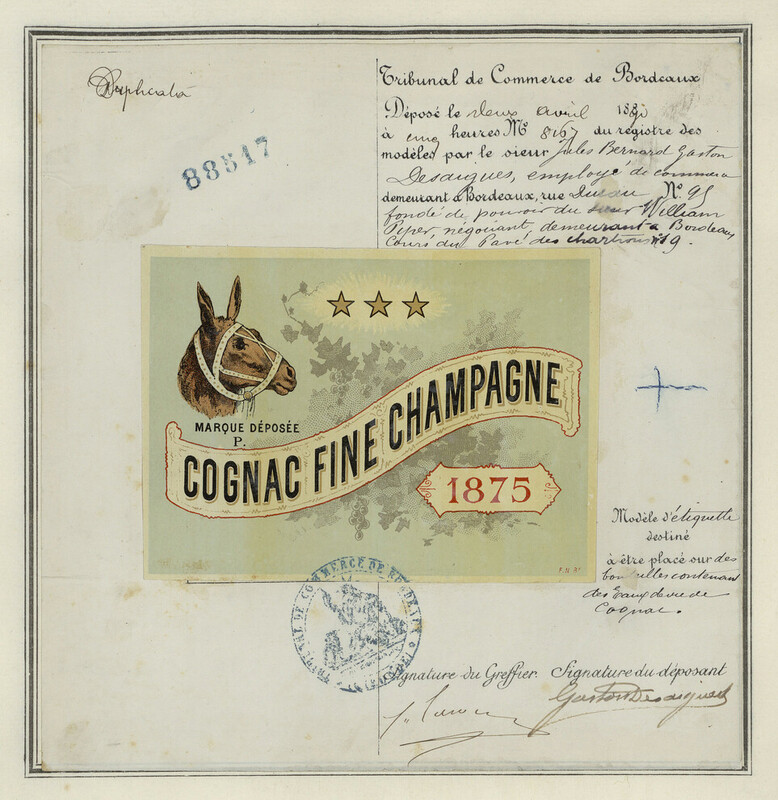 Duplicata
88517
Tribunal de Commerce de Bordeaux
Déposé le deux avril 18
à cinq heures No 8167 du registre des
modèles par le sieur Jules Bernard Gaston
Desaigues, employé de commerce
demeurant à Bordeaux, rue No 95
fondé de pouvoir du sieur William
Piper, négociant, demeurant à Bordeaux
Cours du Pavé des Chartrons 19.
MARQUE DÉPOSÉE
P.
COGNAC FINE CHAMPAGNE
1875
Modèle d'étiquette
destiné
à être placé sur des
bouteilles contenant
des Eaux de vie de
Cognac.
TRIBUNAL DE COMMERCE DE BORDEAUX
Signature du Greffier. Signature du déposant
Gaston Desaigues